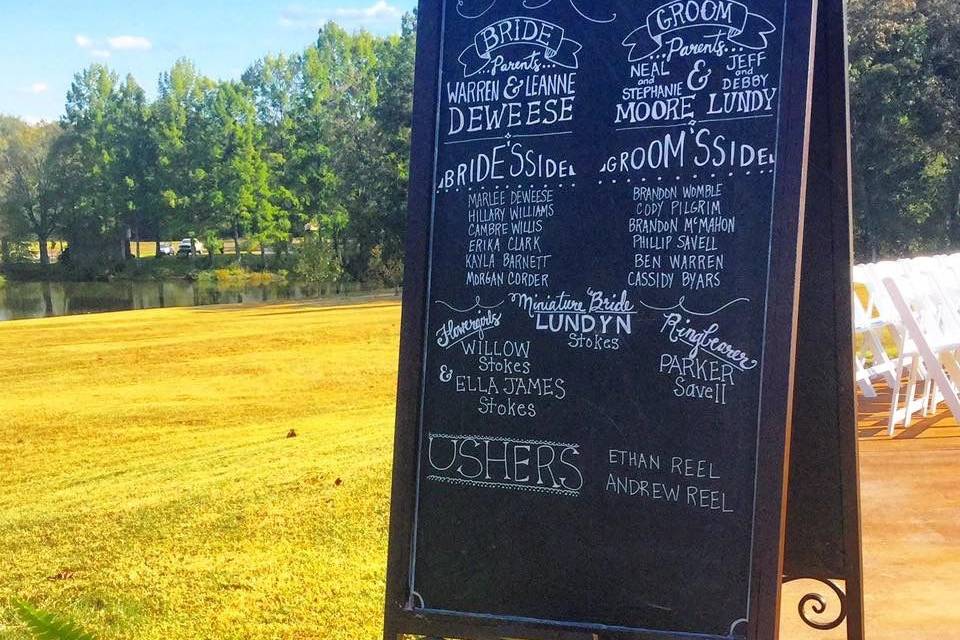 BRIDE
Parents
WARREN & LEANNE
DEWEESE
GROOM
Parents
NEAL and STEPHANIE & JEFF and DEBBY
MOORE LUNDY
BRIDE'S SIDE
MARLEE DEWEESE
HILLARY WILLIAMS
CAMBRE WILLIS
ERIKA CLARK
KAYLA BARNETT
MORGAN CORDER
GROOM'S SIDE
BRANDON WOMBLE
CODY PILGRIM
BRANDON McMAHON
PHILLIP SAVELL
BEN WARREN
CASSIDY BYARS
Flowergirls
WILLOW
Stokes
& ELLA JAMES
Stokes
Miniature Bride
LUNDYN
Stokes
Ringbearer
PARKER
Savell
USHERS
ETHAN REEL
ANDREW REEL